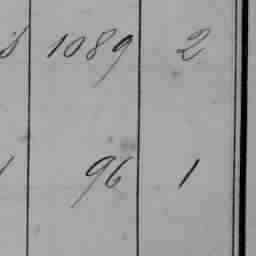 1089 2
96 1